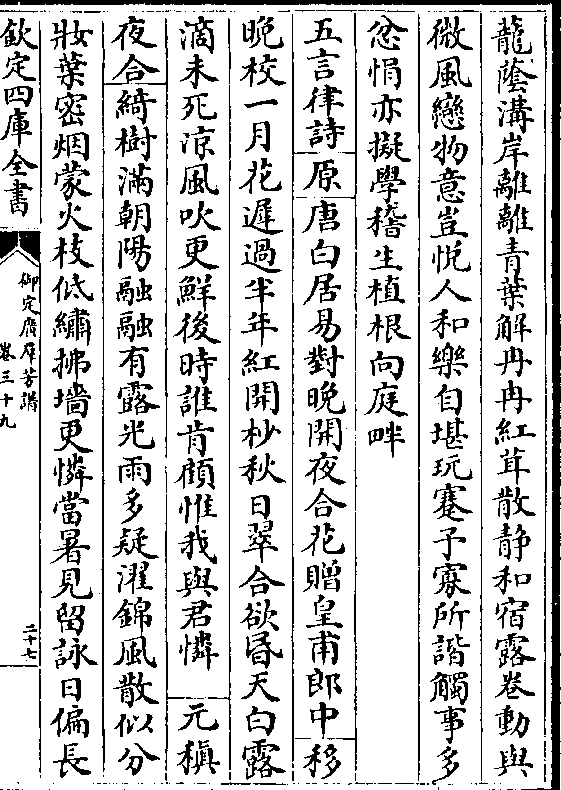 龍蔭溝岸離離青葉解冉冉紅茸散静和宿露卷動與
微風戀物意豈悅人和樂自堪玩蹇予寡所諧觸事多
忿悁亦擬學稽生植根向庭畔
五言律詩原唐白居易對晚開夜合花贈皇甫郎中移
晚校一月花遲過半年紅開杪秋日翠合欲昏天白露
滴未死凉風吹更鮮後時誰肯顧惟我與君憐元稹
夜合綺樹滿朝陽融融有露光雨多疑濯錦風散似分
妝葉密烟蒙火枝低繡拂墻更憐當暑見留詠日偏長
欽定四庫全書
御定廣羣芳譜
卷三十九
二十七